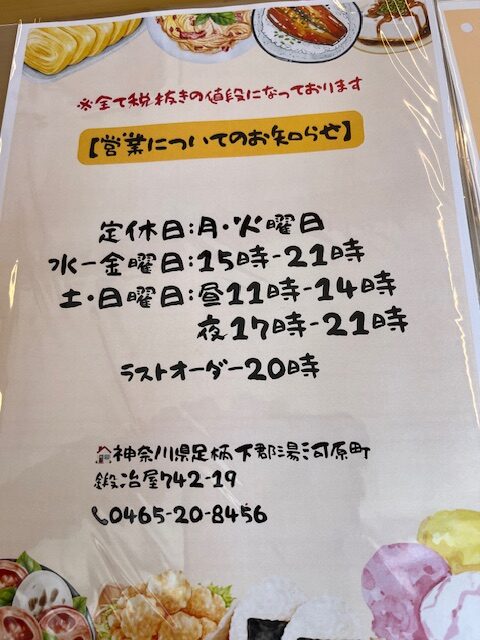 ※全て税抜きの値段になっております
【営業についてのお知らせ】
定休日:月・火曜日
水ー金曜日:15時-21時
土・日曜日:昼11時-14時
夜17時-21時
ラストオーダー20時
神奈川県足柄下郡湯河原町
鍛冶屋742-19
0465-20-8456